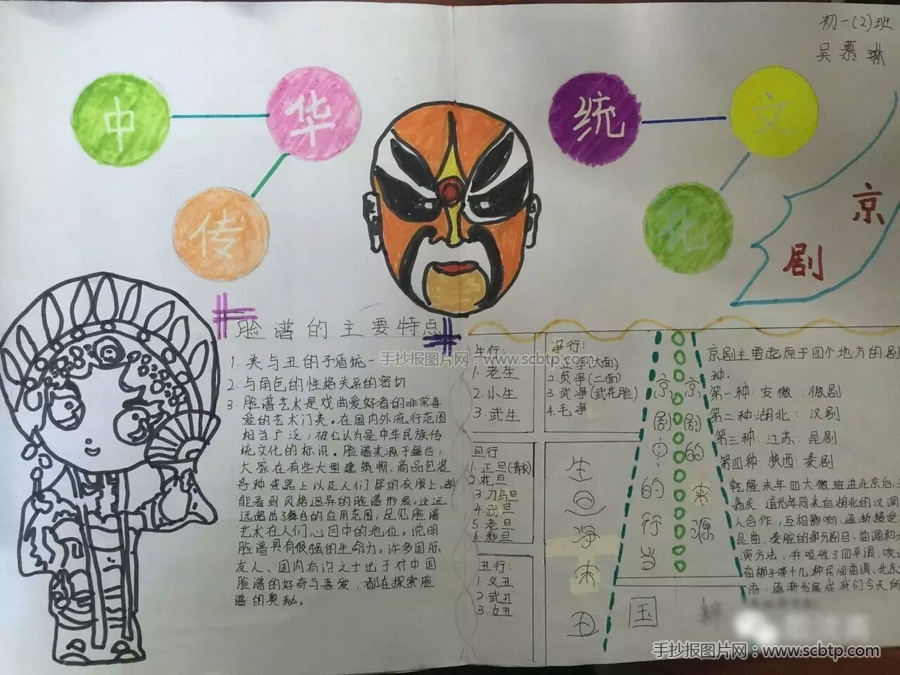 初一(2)班
吴慕琳
中
华
传
统
文
化
京
剧
脸谱的主要特点
1. 美与丑的矛盾统一
2. 与角色的性格关系的密切
3. 脸谱艺术是戏曲爱好者的非常喜
爱的艺术门类。在国内外流行范围
相当广泛,被公认为是中华民族传
统文化的标识。脸谱来源于舞台,
大家在有些大型建筑物、商品包装、
各种瓷器上以及人们穿的衣服上,都
能看到风格迥异的脸谱形象。这远
远超出了舞台的应用范围,足见脸谱
艺术在人们心目中的地位。说明
脸谱具有很强的生命力。许多国际
友人、国内有识之士出于对中国
脸谱的好奇与喜爱,都在探索脸
谱的奥秘。
生行:
1. 老生
2. 小生
3. 武生
净行:
1. 正净(大面)
2. 负净(二面)
3. 武净(武花脸)
4. 毛净
旦行
1. 正旦(青衣)
2 花旦
3 刀马旦
4 武旦
5 老旦
6 彩旦
丑行:
1. 文丑
2. 武丑
3.
生旦净末丑
京剧中的行当
京剧的来源
国
粹
京剧主要起原于四个地方的剧
种.
第一种:安徽:徽剧
第二种:湖北:汉剧
第三种:江苏、昆剧
第四种 陕西·秦剧
乾隆末年四大徽班进北京后,
嘉庆、道光年间来自湖北的汉调
人合作,互相影响,逐渐接受
昆曲,秦腔的部分剧目、曲调和
演方法,并吸收了四平调、
梆子等十几种民间曲调、北京
逐渐发展成我们今天所
手抄报图片网:www.scbtp.com
手抄报图片网:www.scbtp.com